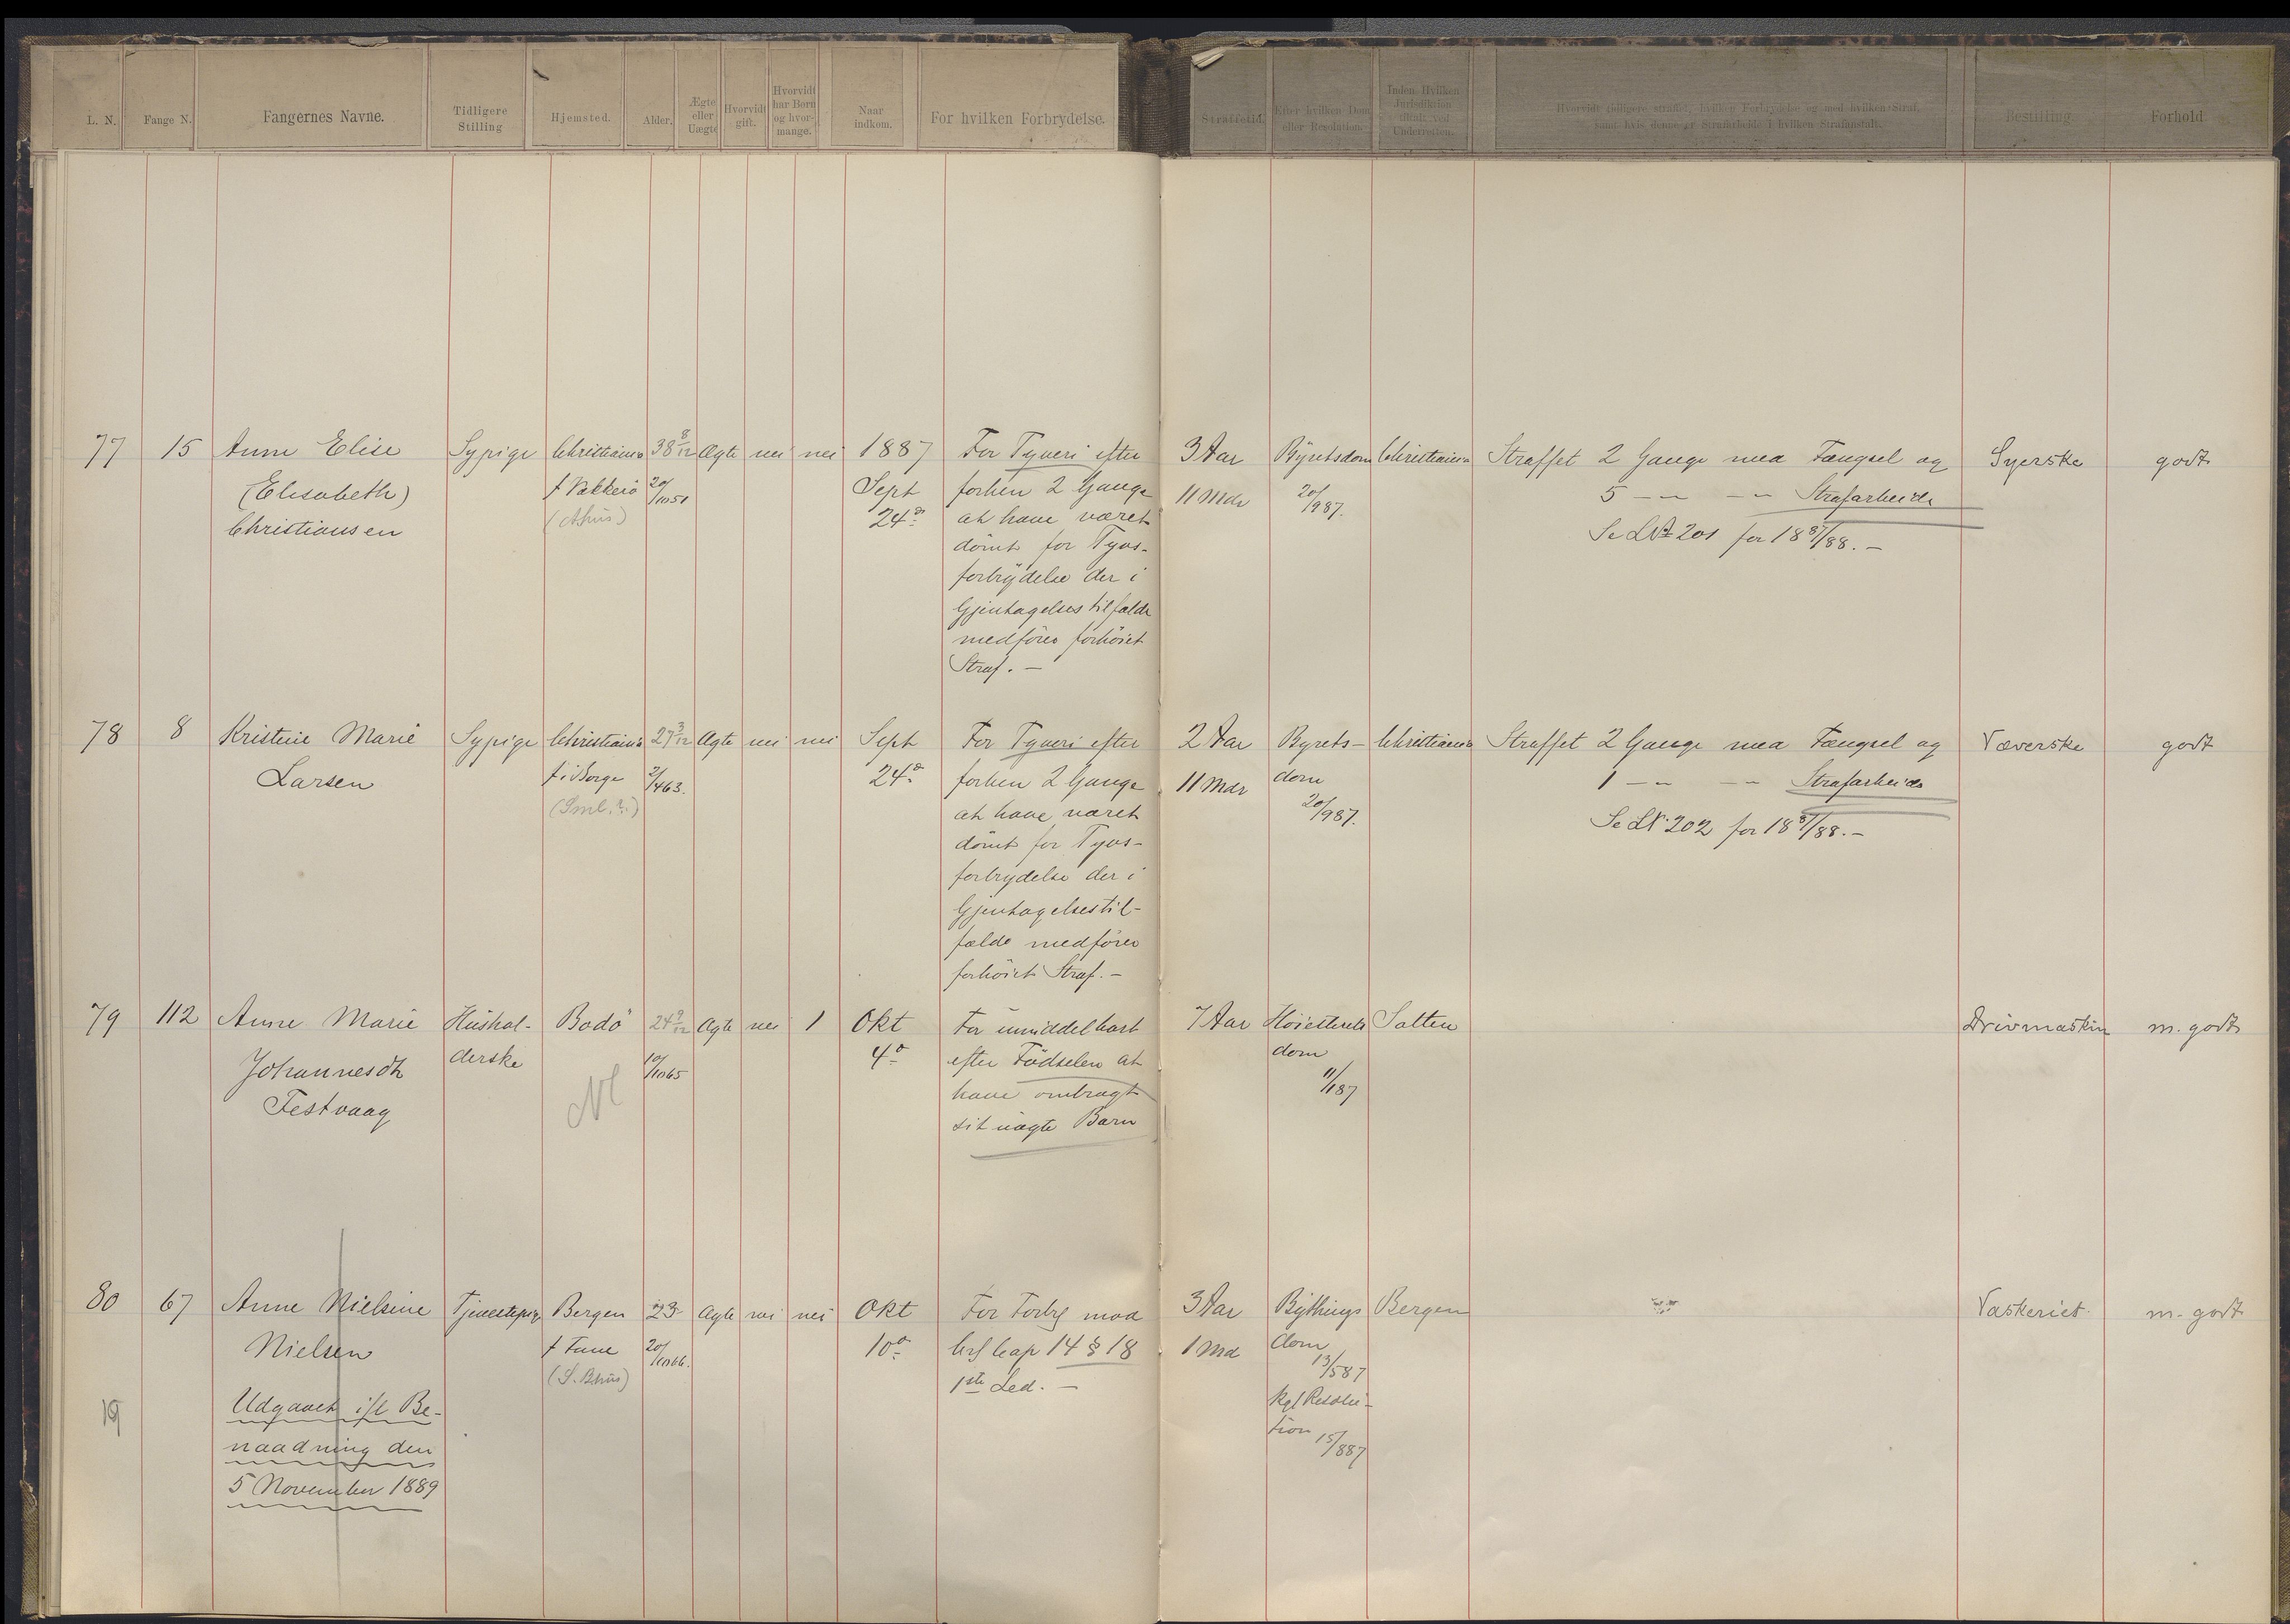 L. N.
Fange N.
Fangernes Navne.
Tidligere
Stilling
Hjemsted.
Alder.
Ægte
eller
Uægte
Hvorvidt
gift.
Hvorvidt
har Børn
og hvor-
mange.
Naar
indkom.
For hvilken Forbrydelse.
Straffetid.
Efter hvilken Dom
eller Resolution.
Inden Hvilken
Jurisdiktion
tiltalt ved
Underretten.
Hvorvidt tidligere straffet, hvilken Forbrydelse og med hvilken Straf,
samt hvis denne er Strafarbeide i hvilken Strafanstalt.
Bestilling
Forhold
77
15
Anne Elise
(Elisabeth)
Christiansen
Sypige
Christiania
f Vækkerö
(Ahus)
38 8/12
20/1 1051
Ægte
nei
nei
1887
Sept
24de
For Tyveri efter
forhen 2 Gange
at have været
dömt for Tyvs-
forbrydelse der i
Gjentagelsestilfælde
medförer forhöiet
Straf. –
3 Aar
11 Mdr
Byretsdom
20/9 87.
Christiania
Straffet 2 Gange med Fængsel og
5 – „ – „ Strafarbeide
Se LNo 201 for 1887/88. –
Syerske
godt
78
8
Kristine Marie
Larsen
Sypige
Christiania
f i Borge
(Sml. ?)
27 3/12
2/4 63.
Ægte
nei
nei
Sept
24de
For Tyveri efter
forhen 2 Gange
at have været
dömt for Tyvs-
forbrydelse der i
Gjentagelsestil-
fælde medförer
forhöiet Straf. –
2 Aar
11 Mdr
Byrets-
dom
20/9 87.
Christiania
Straffet 2 Gange med Fængsel og
1 – „ – „ Strafarbeide
Se LN. 202 for 1887/88. –
Væverske
godt
79
112
Anne Marie
Johannesdtr
Festvaag
Hushol-
derske
Bodö
Nl
24 9/12
10/11 65
Ægte
nei
1
Okt
4de
For umiddelbart
efter Födselen at
have ombragt
sit uægte Barn
7 Aar
Höiesterets
dom
Salten
Drivmaskin
m. godt
80
67
Anne Nielsine
Nielsen
Udgaaet ifl Be-
naadning den
5 November 1889
Tjenestepige
Bergen
f Fane
(S. Bhus)
23
Ægte
nei
nei
Okt
10de
For Forbr mod
Crl Cap 14 § 18
1ste Led. –
3 Aar
1 Md
Bythings
dom
13/5 87
Kgl Resolu-
tion
15/8 87
Bergen
Vaskeriet.
m. godt